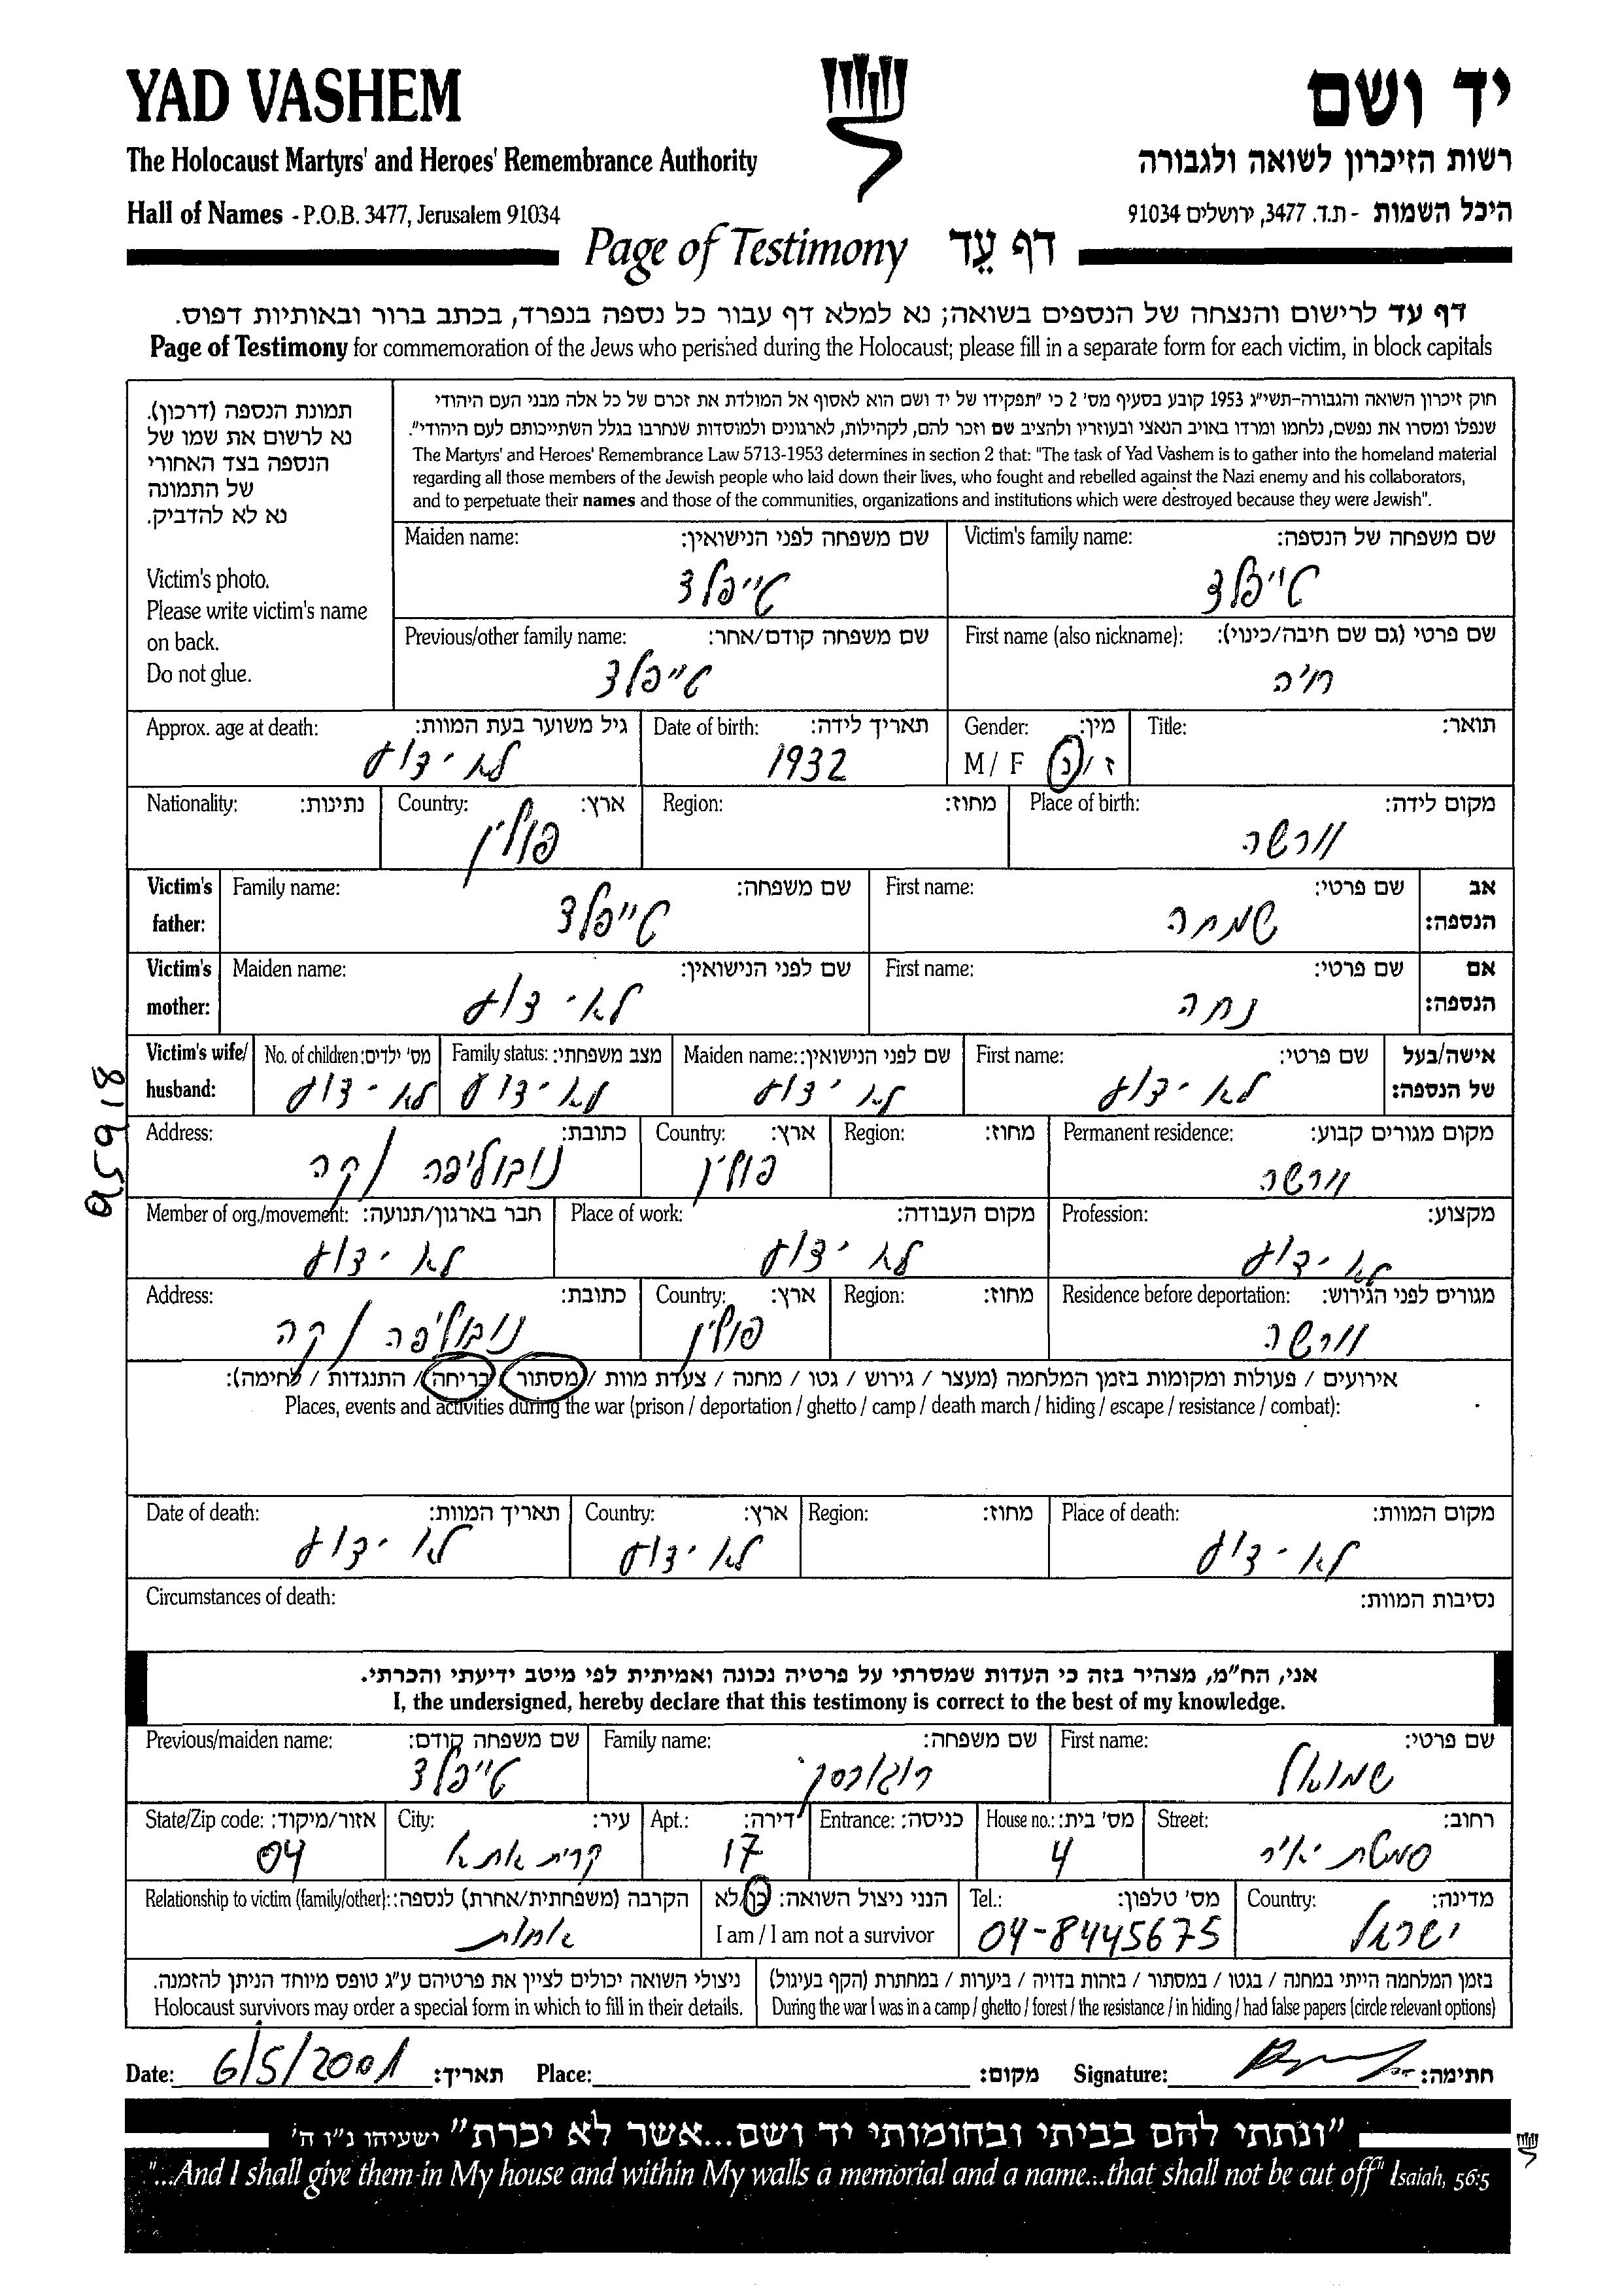 YAD VASHEM
יד ושם
The Holocaust Martyrs' and Heroes' Remembrance Authority
רשות הזיכרון לשואה ולגבורה
Hall of Names - P.O.B. 3477, Jerusalem 91034
היכל השמות - ת.ד. 3477, ירושלים 91034
Page of Testimony דף עֵד
דף עד לרישום והנצחה של הנספים בשואה; נא למלא דף עבור כל נספה בנפרד, בכתב ברור ובאותיות דפוס.
Page of Testimony for commemoration of the Jews who perished during the Holocaust; please fill in a separate form for each victim, in block capitals
תמונת הנספה (דרכון).
נא לרשום את שמו של
הנספה בצד האחורי
של התמונה
נא לא להדביק.
Victim's photo.
Please write victim's name
on back.
Do not glue.
חוק זיכרון השואה והגבורה-תשי"ג 1953 קובע בסעיף מס' 2 כי "תפקידו של יד ושם הוא לאסוף אל המולדת את זכרם של כל אלה מבני העם היהודי
שנפלו ומסרו את נפשם, נלחמו ומרדו באויב הנאצי ובעוזריו ולהציב שם וזכר להם, לקהילות, לארגונים ולמוסדות שנחרבו בגלל השתייכותם לעם היהודי".
The Martyrs' and Heroes' Remembrance Law 5713-1953 determines in section 2 that: "The task of Yad Vashem is to gather into the homeland material
regarding all those members of the Jewish people who laid down their lives, who fought and rebelled against the Nazi enemy and his collaborators,
and to perpetuate their names and those of the communities, organizations and institutions which were destroyed because they were Jewish".
Victim's family name: שם משפחה של הנספה:
טייפלד
Maiden name: שם משפחה לפני הנישואין:
טייפלד
First name (also nickname): שם פרטי (גם שם חיבה/כינוי):
חיה
Previous/other family name: שם משפחה קודם/אחר:
טייפלד
Title: תואר:
Gender: מין:
M / F ז / נ
Date of birth: תאריך לידה:
1932
Approx. age at death: גיל משוער בעת המוות:
לא ידוע
Place of birth: מקום לידה:
וורשה
Region: מחוז:
Country: ארץ:
פולין
Nationality: נתינות:
Victim's father: אב הנספה:
First name: שם פרטי:
שמחה
Family name: שם משפחה:
טייפלד
Victim's mother: אם הנספה:
First name: שם פרטי:
נחה
Maiden name: שם לפני הנישואין:
לא ידוע
Victim's wife/ husband: אישה/בעל של הנספה:
First name: שם פרטי:
לא ידוע
Maiden name: שם לפני הנישואין:
לא ידוע
Family status: מצב משפחתי:
לא ידוע
No. of children: מס' ילדים:
לא ידוע
Permanent residence: מקום מגורים קבוע:
וורשה
Region: מחוז:
Country: ארץ:
פולין
Address: כתובת:
נובוליפה
Profession: מקצוע:
לא ידוע
Place of work: מקום העבודה:
לא ידוע
Member of org./movement: חבר בארגון/תנועה:
לא ידוע
Residence before deportation: מגורים לפני הגירוש:
וורשה
Region: מחוז:
Country: ארץ:
פולין
Address: כתובת:
נובוליפה
אירועים / פעולות ומקומות בזמן המלחמה (מעצר / גירוש / גטו / מחנה / צעדת מוות / מסתור / בריחה / התנגדות / לחימה):
Places, events and activities during the war (prison / deportation / ghetto / camp / death march / hiding / escape / resistance / combat):
Place of death: מקום המוות:
לא ידוע
Region: מחוז:
Country: ארץ:
לא ידוע
Date of death: תאריך המוות:
לא ידוע
Circumstances of death: נסיבות המוות:
אני, הח"מ, מצהיר בזה כי העדות שמסרתי על פרטיה נכונה ואמיתית לפי מיטב ידיעתי והכרתי.
I, the undersigned, hereby declare that this testimony is correct to the best of my knowledge.
First name: שם פרטי:
שמואל
Family name: שם משפחה:
Previous/maiden name: שם משפחה קודם:
טייפלד
Street: רחוב:
סמטת יאיר
House no.: מס' בית:
4
Entrance: כניסה:
Apt.: דירה:
17
City: עיר:
קרית אתא
State/Zip code: אזור/מיקוד:
04
Country: מדינה:
ישראל
Tel.: מס' טלפון:
04-8445675
הנני ניצול השואה: כן/לא
I am / I am not a survivor
Relationship to victim (family/other): הקרבה (משפחתית/אחרת) לנספה:
אחות
בזמן המלחמה הייתי במחנה / בגטו / במסתור / בזהות בדויה / ביערות / במחתרת (הקף בעיגול)
During the war I was in a camp / ghetto / forest / the resistance / in hiding / had false papers (circle relevant options)
ניצולי השואה יכולים לציין את פרטיהם ע"ג טופס מיוחד הניתן להזמנה.
Holocaust survivors may order a special form in which to fill in their details.
Date: 6/5/2001 תאריך: Place: מקום: Signature: חתימה:
"ונתתי להם בביתי ובחומותי יד ושם...אשר לא יכרת" ישעיהו נ"ו ה'
"...And I shall give them in My house and within My walls a memorial and a name...that shall not be cut off" Isaiah, 56:5